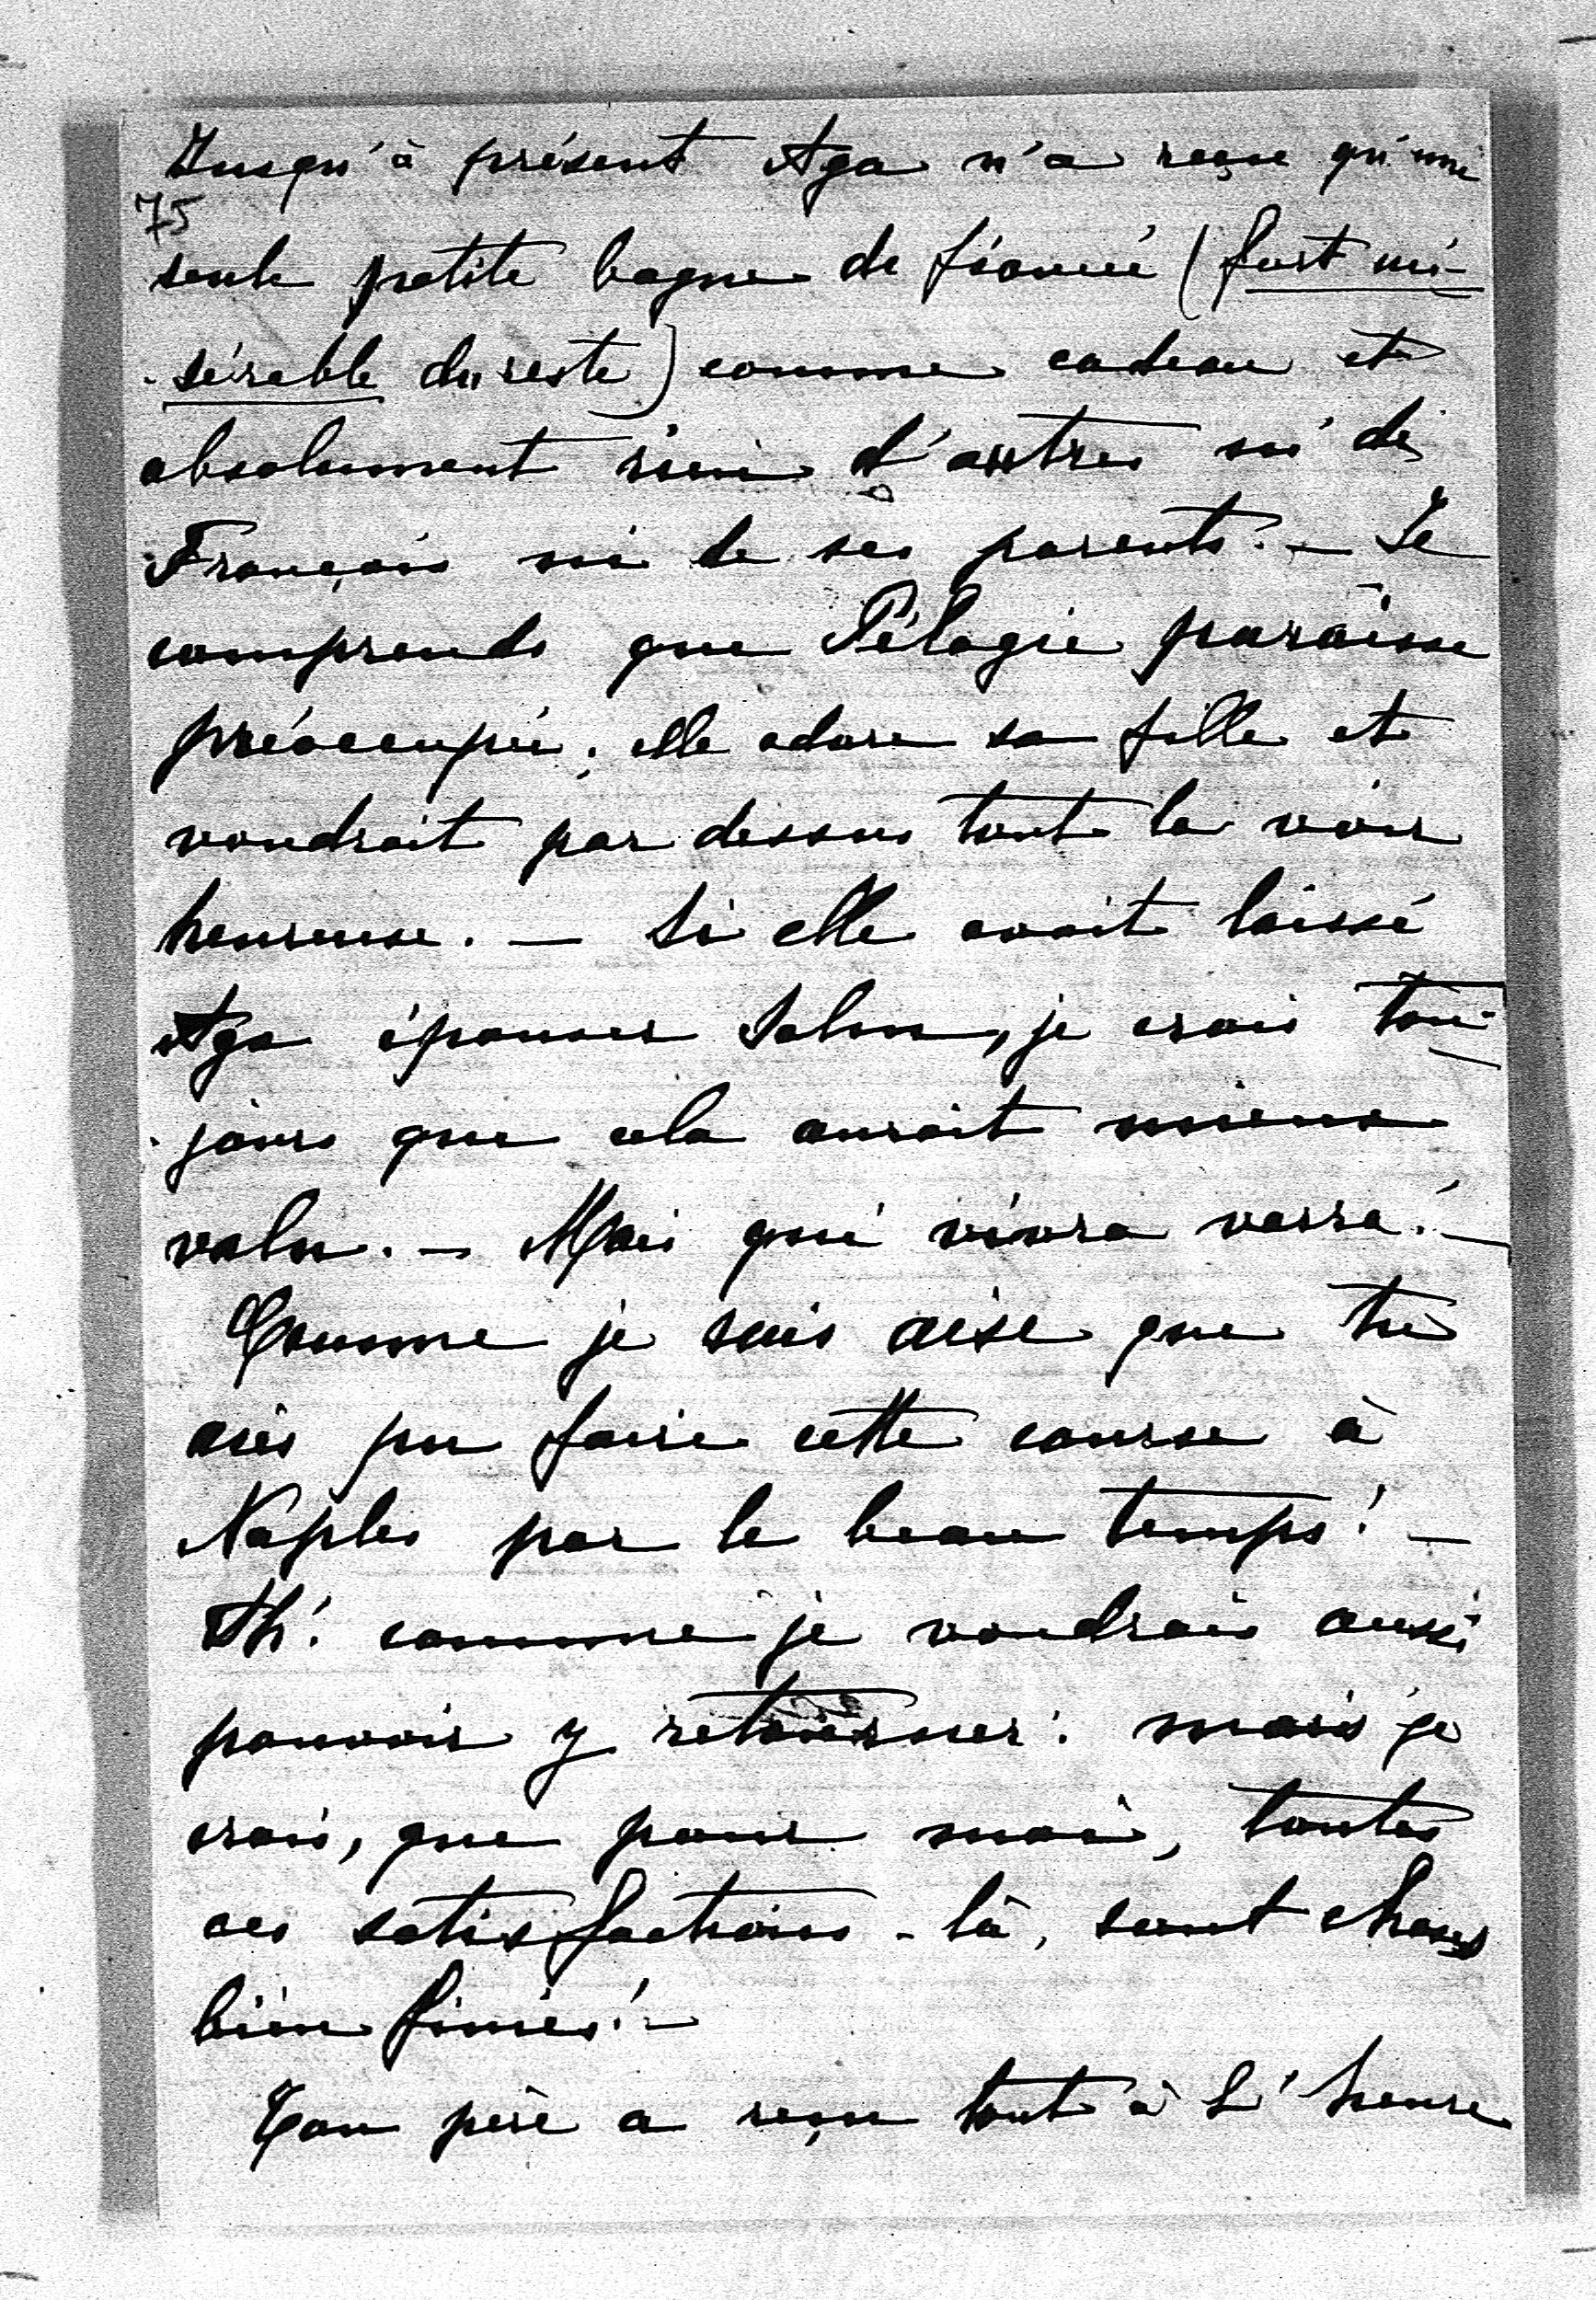 Jusqu'à présent Aga n'a reçu qu'une
75
seule petite bague de fiancée (fort mi-
-sérable du reste) comme cadeau et
absolument rien d'autres ni de
François ni de ses parents. — Je
comprends que Pélagie paraisse
préoccupée; elle adore sa fille et
voudrait par dessus tout la voir
heureuse. — Si elle avait laissé
Aga épouser Salm, je crois tou-
-jours que cela aurait mieux
valu. — Mais qui vivra verra! —
Comme je suis aise que tu
aies pu faire cette course à
Naples par le beau temps! —
Ah! comme je voudrais aussi
pouvoir y retourner! mais je
crois, que pour moi, toutes
ces satisfactions-là, sont choses
bien finies! —
Ton père a reçu tout à l'heure